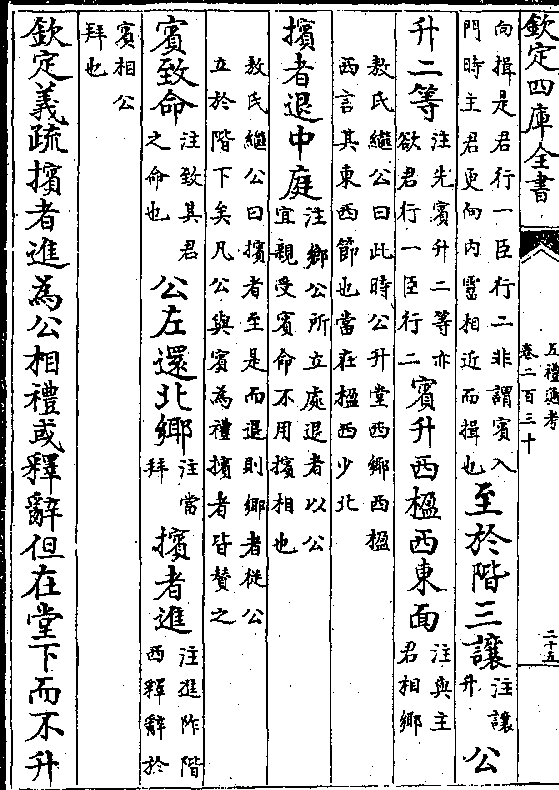 欽定四庫全書
五禮通考
卷二百三十
二十五
向揖是君行一臣行二非謂賓入
門時主君更向內霤相近而揖也
至於階三讓
注讓
升
公
升二等
注先賓升二等亦
欲君行一臣行二
賓升西楹西東面
注與主
君相鄉
敖氏繼公曰此時公升堂西鄉西楹
西言其東西節也當在楹西少北
擯者退中庭
注鄉公所立處退者以公
宜親受賓命不用擯相也
敖氏繼公曰擯者至是而退則鄉者從公
立於階下矣凡公與賓為禮擯者皆贊之
賓致命
注致其君
之命也
公左還北鄉
注當
拜
擯者進
注進阼階
西釋辭於
賓相公
拜也
欽定義疏擯者進為公相禮或釋辭但在堂下而不升